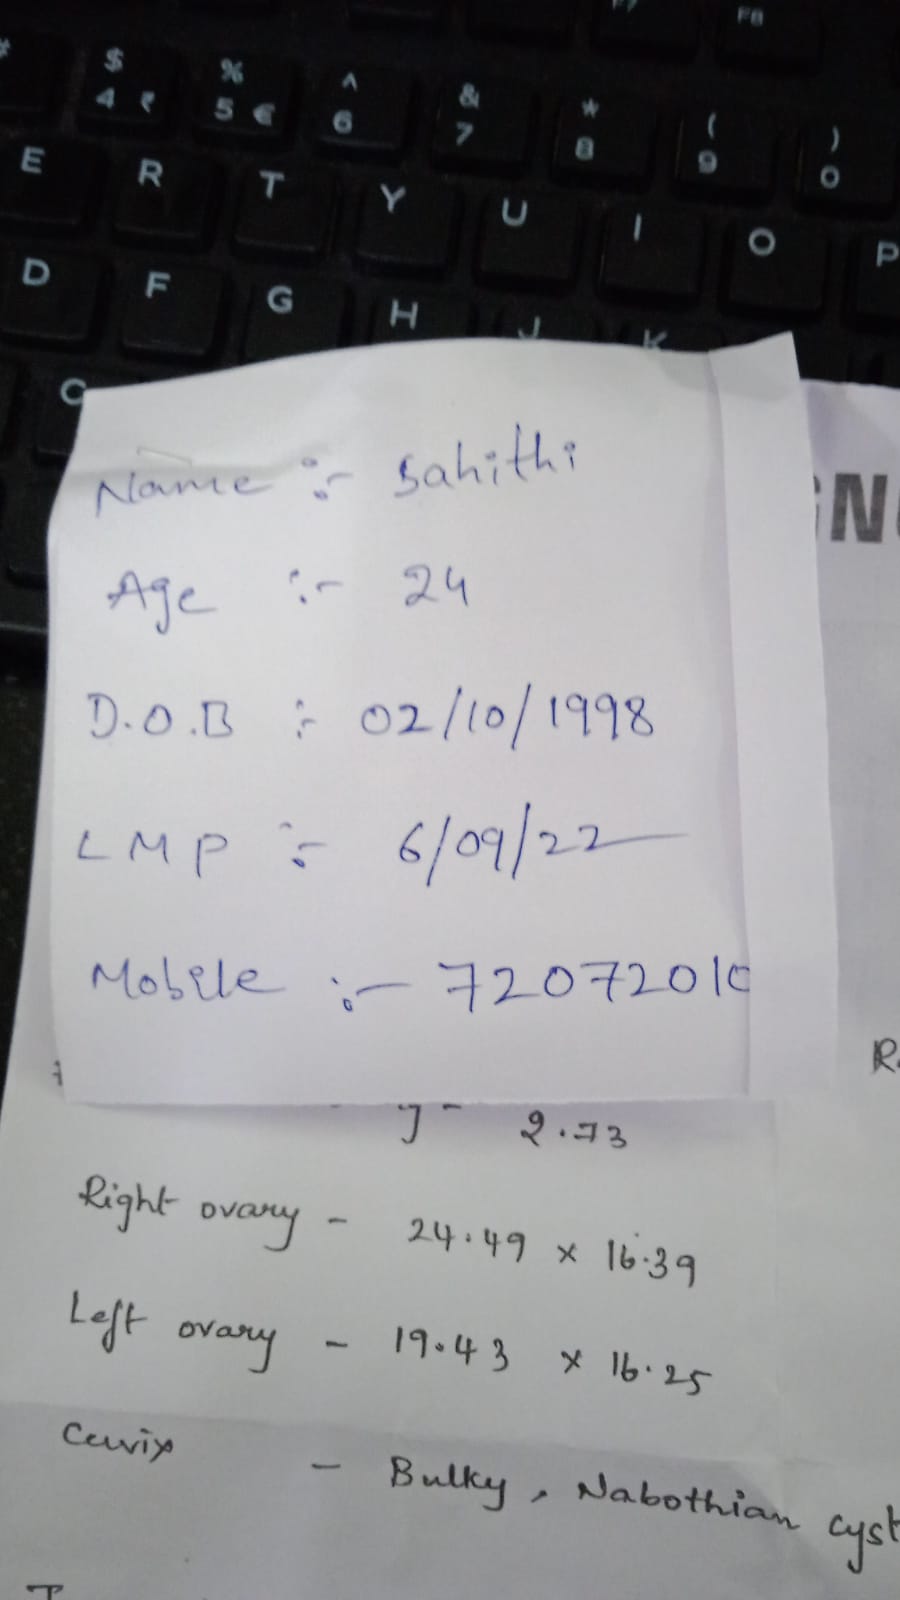 F8
$ % ^ & * ( )
4 ₹ 5 € 6 7 8 9 0
E R T Y U I O P
D F G H J K
C
Name :- Sahithi
Age :- 24
D.O.B :- 02/10/1998
LMP :- 6/09/22
Mobile :- 72072010
2.73
Right ovary - 24.49 x 16.39
Left ovary - 19.43 x 16.25
Cervix - Bulky, Nabothian cyst